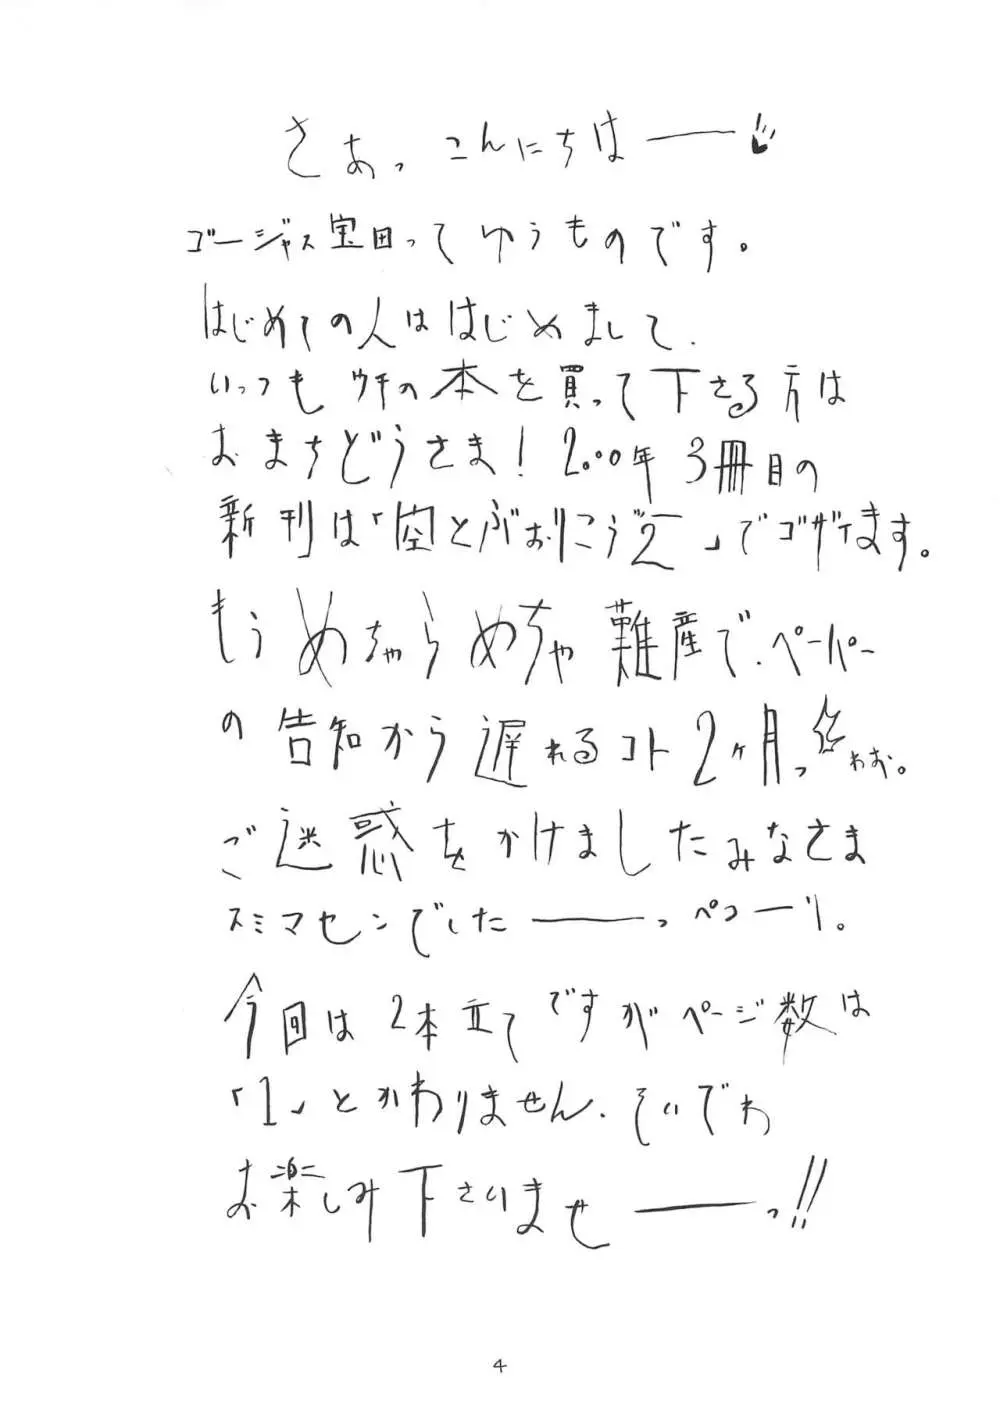 さあっ こんにちは──
ゴージャス宝田ってゆうものです。
はじめての人ははじめまして、
いっつもウチの本を買って下さる方は
おまちどうさま!2000年3冊目の
新刊は「空とぶおりこう2」でゴザイます。
もうめちゃらめちゃ難産で、ペーパー
の告知から遅れるコト2ヶ月っ わお。
ご迷惑をかけましたみなさま
スミマセンでした──っ ペコーリ。
今回は2本立てですがページ数は
「1」とかわりません、そいでわ
お楽しみ下さいませ──っ!!
4